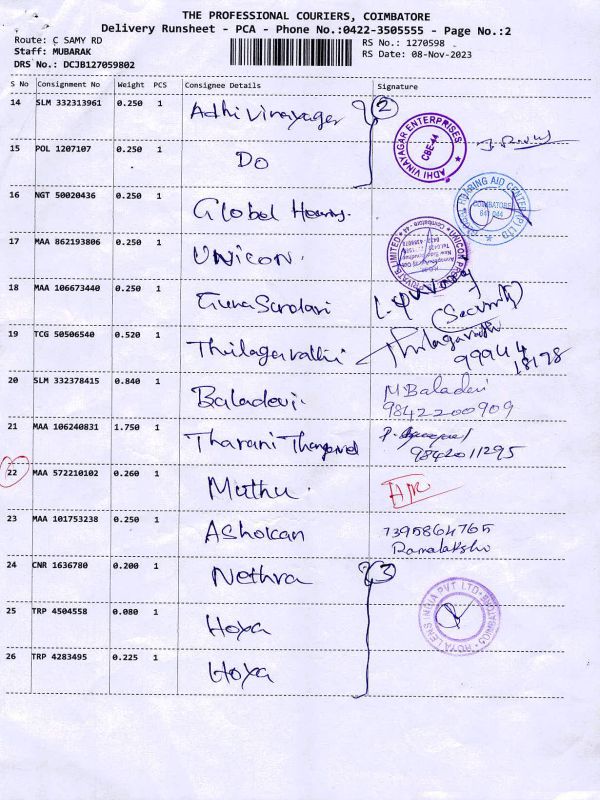 THE PROFESSIONAL COURIERS, COIMBATORE
Delivery Runsheet - PCA - Phone No.:0422-3505555 - Page No.:2
Route: C SAMY RD RS No.: 1270598
Staff: MUBARAK RS Date: 08-Nov-2023
DRS No.: DCJB127059802
S No Consignment No Weight PCS Consignee Details Signature
14 SLM 332313961 0.250 1 Adhi Vinayager 2
15 POL 1207107 0.250 1 Do
ADHI VINAYAGAR ENTERPRISES CBE-44
16 NGT 50020436 0.250 1 Global Hearing.
HEARING AID CENTRE (P) LTD COIMBATORE 641 044
17 MAA 862193806 0.250 1 Unicon.
UNICON PRIVATE LIMITED Coimbatore - 44
18 MAA 106673440 0.250 1 (Security)
19 TCG 50506540 0.520 1 Thilagavathi Thilagavathi
99944
18178
20 SLM 332378415 0.840 1 Baladevi. M Baladevi
9842200909
21 MAA 106240831 1.750 1 Tharani Thangavel
9842011295
22 MAA 572210102 0.260 1 Muthu.
23 MAA 101753238 0.250 1 Ashokan 7395864765
24 CNR 1636780 0.200 1 Nethra 3
25 TRP 4504558 0.080 1 Hoya
HOYA LENS INDIA PVT LTD COIMBATORE
26 TRP 4283495 0.225 1 Hoya